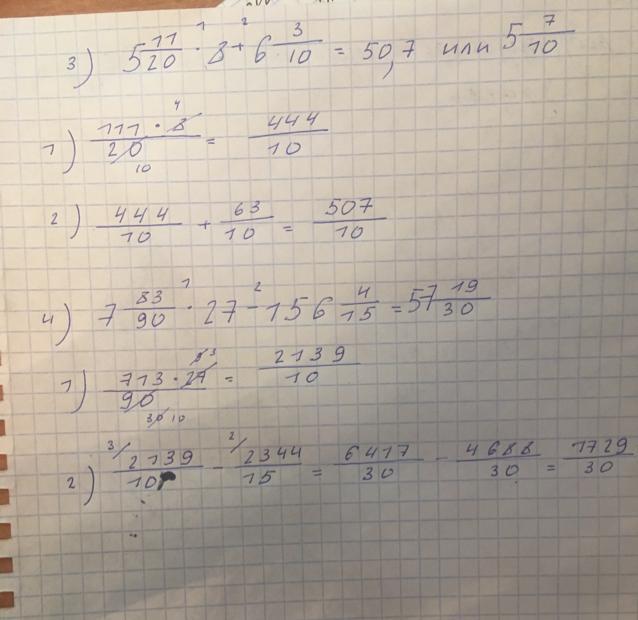 3) 5 11/20 · 8 + 6 3/10 = 50,7 или 5 7/10
1) 111 · 8 / 20 = 444/10
2) 444/10 + 63/10 = 507/10
4) 7 83/90 · 27 - 156 4/15 = 57 19/30
1) 713 · 27 / 90 = 2139/10
2) 2139/10 - 2344/15 = 6417/30 - 4688/30 = 1729/30